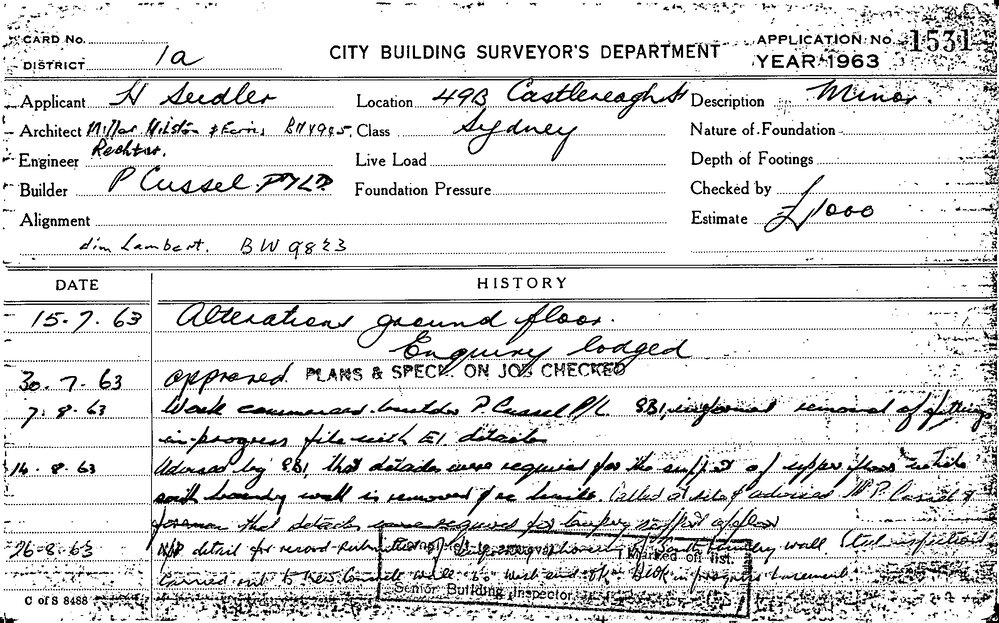 CARD No.
DISTRICT 1a
CITY BUILDING SURVEYOR'S DEPARTMENT
APPLICATION No. 1531
YEAR 1963
Applicant H Seidler
Location 49B Castlereagh St
Description Minor.
Architect BW 9825
Class Sydney
Nature of Foundation
Engineer
Live Load
Depth of Footings
Builder P Cussel PTY LTD
Foundation Pressure
Checked by
Alignment
Estimate £1000
Jim Lambert. BW 9823
DATE
HISTORY
15-7-63 Alterations ground floor.
Enquiry lodged
30-7-63 approved. PLANS & SPECK. ON JOB CHECKED
7-8-63 Work commenced builder P. Cussel P/L SBI, informal removal of fittings
in progress file with EI details
14-8-63 Advised by SBI, that details were required for the support of upper floor while
south boundary wall is removed Called at site & advised Mr P. Cussel &
foreman that details were required for temporary support of floor
26-8-63 detail for record boundary wall
carried out to new concrete wall to west end OK in progress basement.
Marked on list.
Senior Building Inspector
C of S 8488